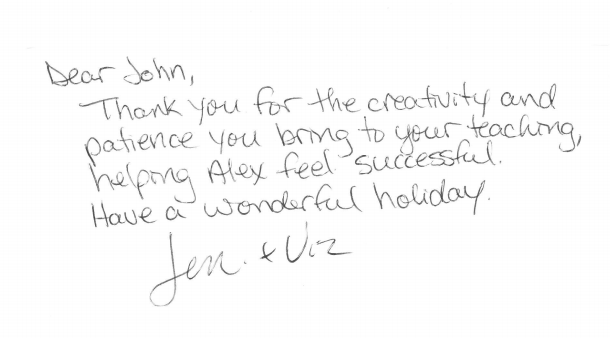 Dear John,
Thank you for the creativity and
patience you bring to your teaching,
helping Alex feel successful.
Have a wonderful holiday.
Jen. + Viz